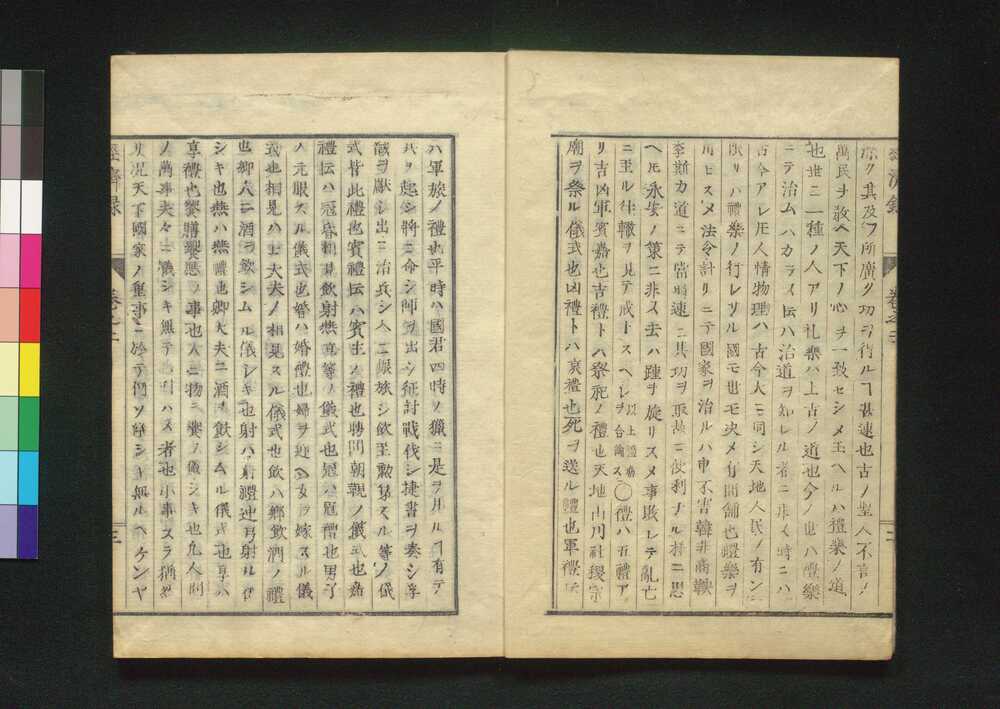 深ク其及フ所廣ク功ヲ得ルヿ甚速也古ノ聖人不言ノ
萬民ヲ教ヘ天下ノ心ヲ一致セシメ玉ヘルハ禮樂ノ道
也世ニ二種ノ人アリ礼樂ハ上古ノ道也今ノ世ハ禮樂
ニテ治ムハカラス伝ハ治道ヲ知レル者ニ非ス時ニハ
古今アレ𪜈人情物理ハ古今大ニ同シ天地人民ノ有ン
限リハ禮樂ノ行レサル國モ世モ決メ有間舗也禮樂ヲ
用ヒスメ法令計リニテ國家ヲ治ルハ申不害韓非商鞅
李斯カ道ニテ當時速ニ其功ヲ取其ニ便利ナル様ニ思
ヘ𪜈永安ノ策ニ非ス去ハ踵ヲ旋リスメ事壞レテ亂亡
ニ至ル往轍ヲ見テ戒トスヘシ 以上禮樂ヲ合論ス ◯禮ハ五禮ア
リ吉凶軍賓嘉也吉禮トハ祭祀ノ禮也天地山川社稷宗
廟ヲ祭ル儀式也凶禮トハ哀禮也死ヲ送ル禮也軍禮ト
ハ軍旅ノ禮也平時ハ國君四時ノ獵ニ是ヲ用ルヿ有テ
兵ヲ起シ將ニ命シ師ヲ出シ征討戰伐シ捷書ヲ奏シ俘
馘ヲ獻シ出ニ治兵シ入ニ振旅シ飲至勲策スル等ノ儀
式皆此禮也賓禮伝ハ賓主ノ禮也聘問朝覲ノ儀式也嘉
禮伝ハ冠昏相見飲射燕享等ノ儀式也冠ハ冠禮也男子
ノ元服スル儀式也婚ハ婚禮也婦ヲ迎ヘ女ヲ嫁スル儀
式也相見ハ士大夫ノ相見スル儀式也飲ハ郷飲酒ノ禮
也郷人ニ酒ヲ飲シムル儀シキ也射ハ射禮也弓射ル儀
シキ也燕ハ燕禮也卿大夫ニ酒ヲ飲シムル儀式也享ハ
享禮也饗膳饗應ノ事也人ニ物ヲ饗ル儀シキ也凡人間
ノ萬事夫々ニ儀シキ無テ叶ハス者也小事スラ猶然
リ况天下國家ノ重事ニ於テ何ソ儀シキ無ルヘケンヤ
經濟録
卷之二
三